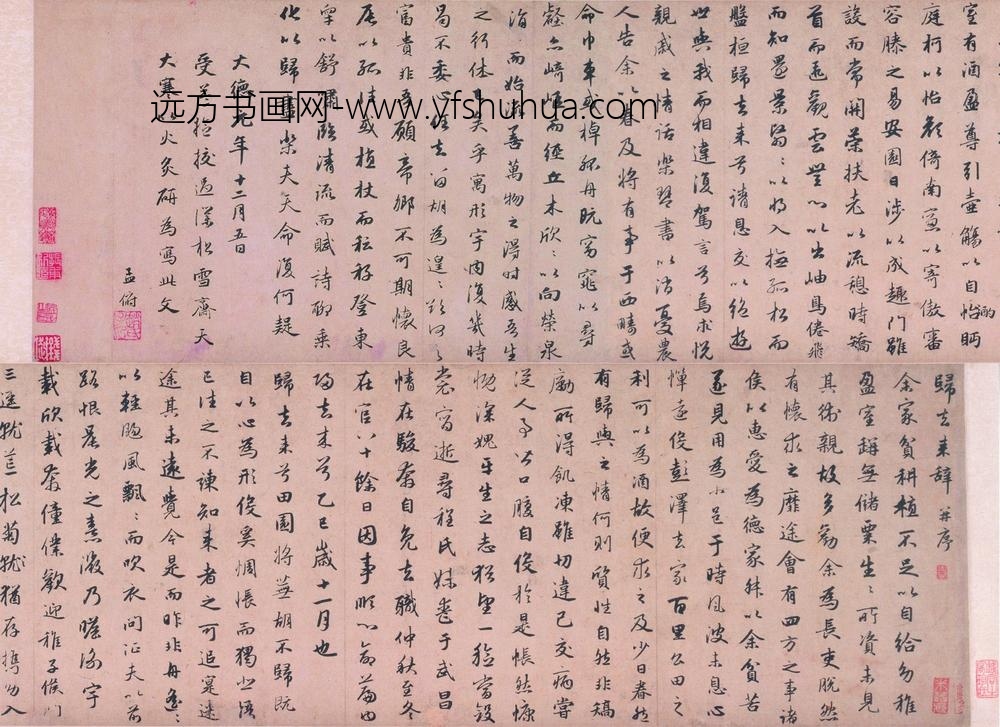 歸去来辞 并序
余家貧耕植不足以自給幼稚
盈室缾無儲粟生〻所資未見
其術親故多勸余為長吏脫然
有懷求之靡途會有四方之事諸
侯以惠愛為德家叔以余貧苦
遂見用為小邑于時風波未息心
憚遠役彭澤去家百里公田之
利可以為酒故便求之及少日眷然
有歸與之情何則質性自然非矯
勵所得飢凍雖切違己交病嘗
從人事皆口腹自役於是悵然慷
慨深媿平生之志猶望一稔當斂
裳宵逝尋程氏妹喪于武昌
情在駿奔自免去職仲秋至冬
在官八十餘日因事順心命篇曰
歸去来兮乙巳歲十一月也
歸去来兮田園將蕪胡不歸既
自以心為形役奚惆悵而獨悲悟
已往之不諫知来者之可追寔迷
途其未遠覺今是而昨非舟遙〻
以輕颺風飄〻而吹衣問征夫以前
路恨晨光之熹微乃瞻衡宇
載欣載奔僮僕歡迎稚子候門
三逕就荒松菊就猶存攜幼入
室有酒盈尊引壺觴以自怡酌眄
庭柯以怡顏倚南窓以寄傲審
容膝之易安園日涉以成趣門雖
設而常關策扶老以流憩時矯
首而遐觀雲無心以出岫鳥倦飛
而知還景翳〻以將入撫孤松而
盤桓歸去来兮請息交以絕遊
世與我而相違復駕言兮焉求悅
親戚之情話樂琴書以消憂農
人告余以春及將有事于西疇或
命巾車或棹孤舟既窈窕以尋
壑亦崎嶇而經丘木欣〻以向榮泉
涓〻而始流善萬物之得時感吾生
之行休已矣乎寓形宇内復幾時
曷不委心任去留胡為遑〻欲何之
富貴非吾願帝鄉不可期懷良
辰以孤往或植杖而耘耔登東
皋以舒嘯臨清流而賦詩聊乘
化以歸盡樂夫天命復何疑
大德元年十二月五日
受益提挍過僕松雪齋天
大寒以火炙研為寫此文
孟俯
远方书画网-www.yfshuhua.com